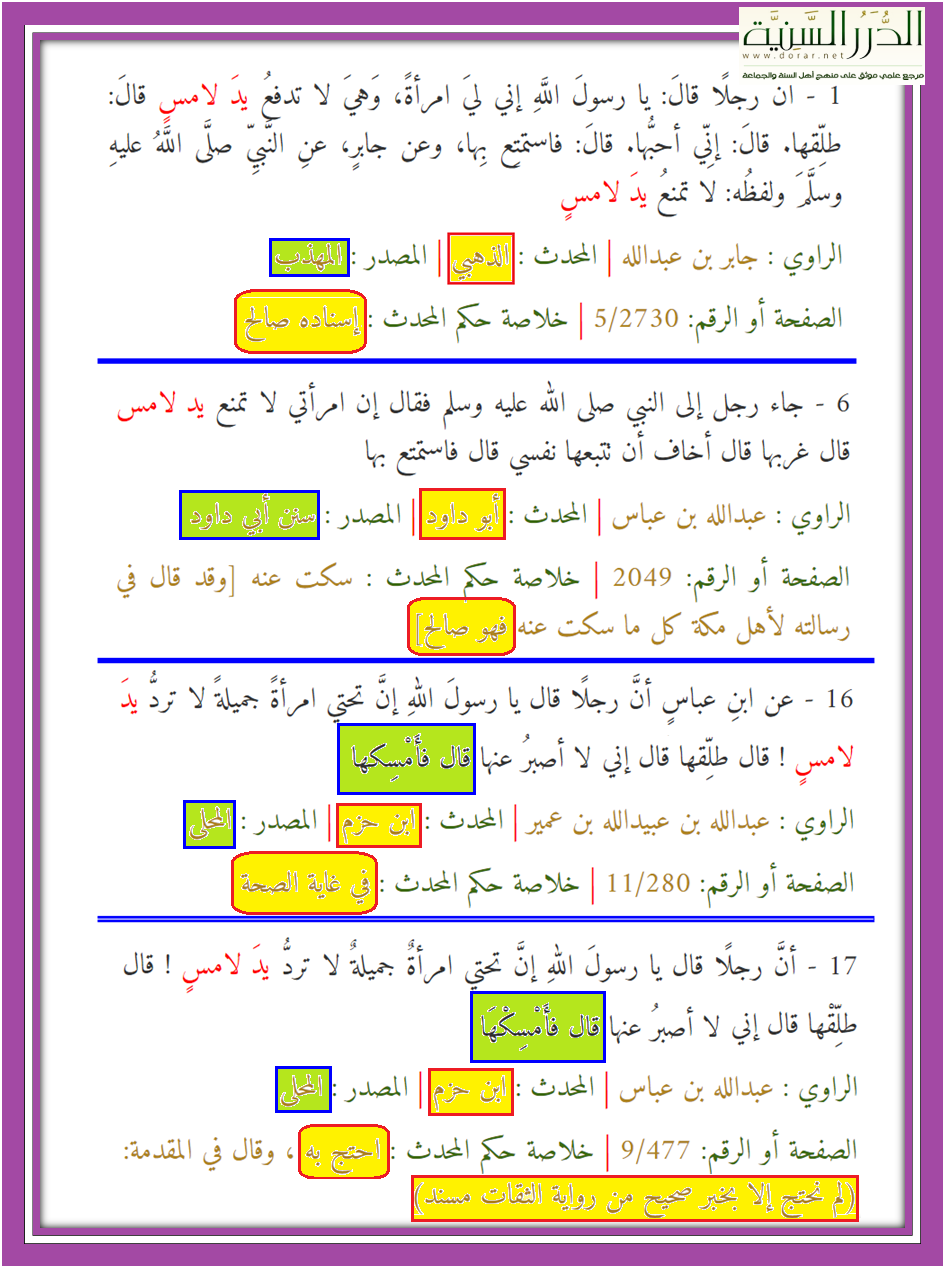 الدُّرَرُ السَّنِيَّة
www.dorar.net
مرجع علمي موثق على منهج أهل السنة والجماعة
1 - أن رجلًا قالَ: يا رسولَ اللَّهِ إني ليَ امرأةً، وَهيَ لا تدفعُ يدَ لامسٍ قالَ:
طلِّقها. قالَ: إنِّي أحبُّها. قالَ: فاستمتِع بِها، وعن جابرٍ، عنِ النَّبيِّ صلَّى اللَّهُ عليهِ
وسلَّمَ ولفظُه: لا تمنعُ يدَ لامسٍ
الراوي : جابر بن عبدالله | المحدث : الذهبي | المصدر : المهذب
الصفحة أو الرقم: 5/2730 | خلاصة حكم المحدث : إسناده صالح
6 - جاء رجل إلى النبي صلى الله عليه وسلم فقال إن امرأتي لا تمنع يد لامس
قال غربها قال أخاف أن تتبعها نفسي قال فاستمتع بها
الراوي : عبدالله بن عباس | المحدث : أبو داود | المصدر : سنن أبي داود
الصفحة أو الرقم: 2049 | خلاصة حكم المحدث : سكت عنه [وقد قال في
رسالته لأهل مكة كل ما سكت عنه فهو صالح]
16 - عن ابنِ عباسٍ أنَّ رجلًا قال يا رسولَ اللهِ إنَّ تحتي امرأةً جميلةً لا تردُّ يدَ
لامسٍ ! قال طلِّقها قال إني لا أصبرُ عنها قال فأَمْسِكها
الراوي : عبدالله بن عبيدالله بن عمير | المحدث : ابن حزم | المصدر : المحلى
الصفحة أو الرقم: 11/280 | خلاصة حكم المحدث : في غاية الصحة
17 - أنَّ رجلًا قال يا رسولَ اللهِ إنَّ تحتي امرأةٌ جميلةٌ لا تردُّ يدَ لامسٍ ! قال
طلِّقْها قال إني لا أصبرُ عنها قال فأَمْسِكْهَا
الراوي : عبدالله بن عباس | المحدث : ابن حزم | المصدر : المحلى
الصفحة أو الرقم: 9/477 | خلاصة حكم المحدث : احتج به ، وقال في المقدمة:
(لم نحتج إلا بخبر صحيح من رواية الثقات مسند)